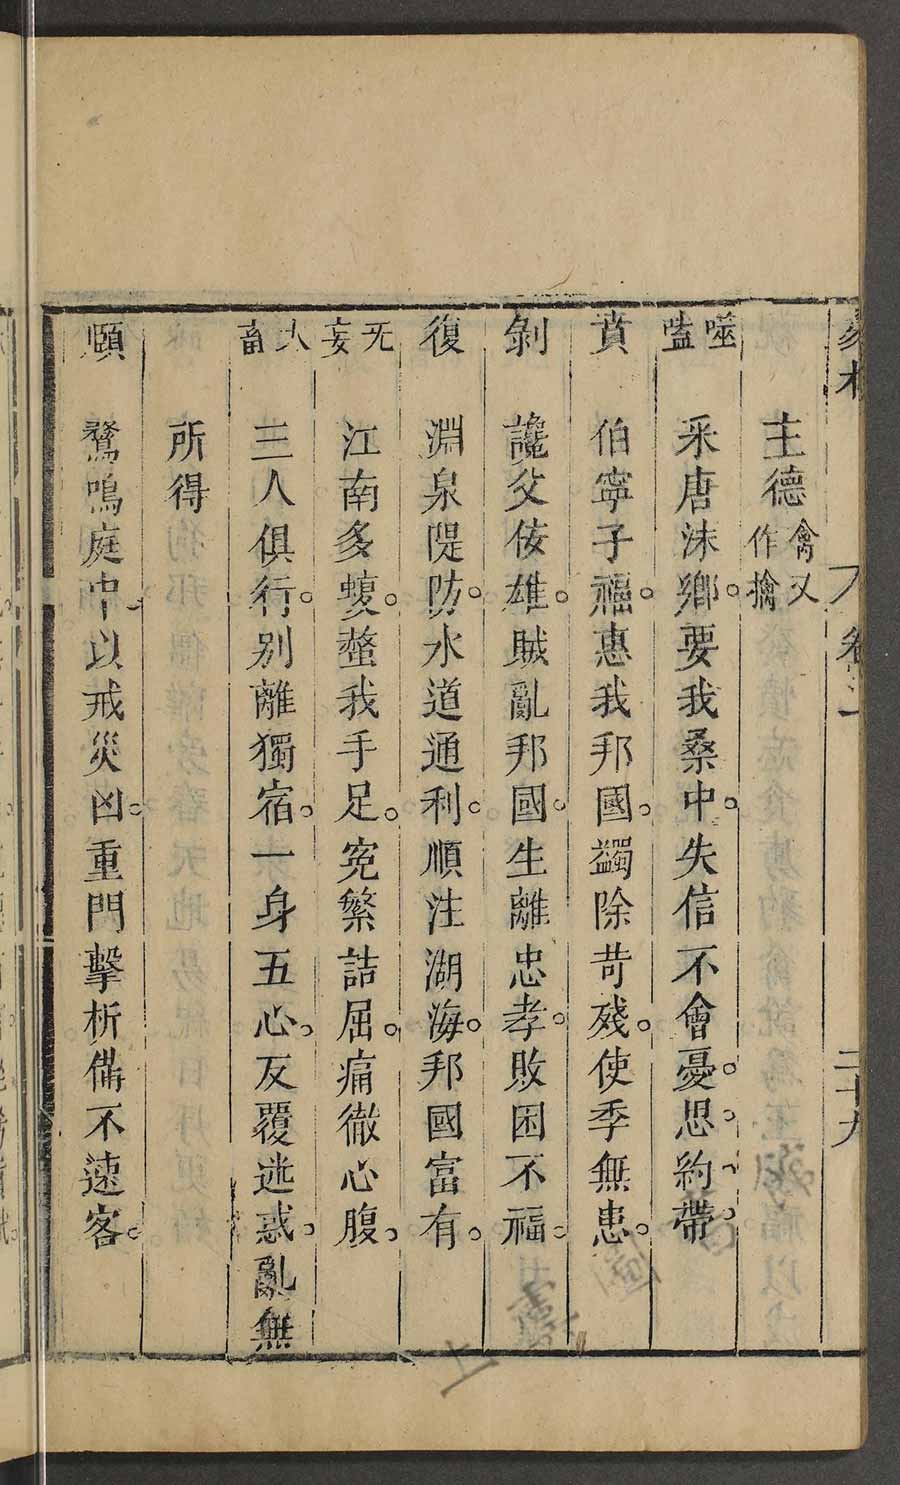 易林 卷之一 二十九
主德 禽又作擒
噬嗑 采唐沬鄉。要我桑中。失信不會。憂思約帶。
賁 伯寧子福。惠我邦國。蠲除苛殘。使季無患。
剝 讒父佞雄。賊亂邦國。生離忠孝。敗困不福。
復 淵泉隄防。水道通利。順注湖海。邦國富有。
无妄 江南多蝮。螫我手足。寃繁詰屈。痛徹心腹。
大畜 三人俱行。别離獨宿。一身五心。反覆迷惑。亂無
所得
頤 鶖鳴庭中、以戒災凶。重門擊柝備不速客。